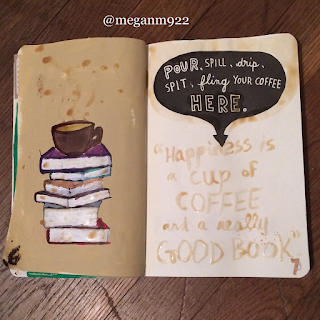 @meganm922
POUR, SPILL, drip,
SPIT, fling YOUR COFFEE
HERE.
"Happiness is
a cup of
COFFEE
and a really
GOOD BOOK"